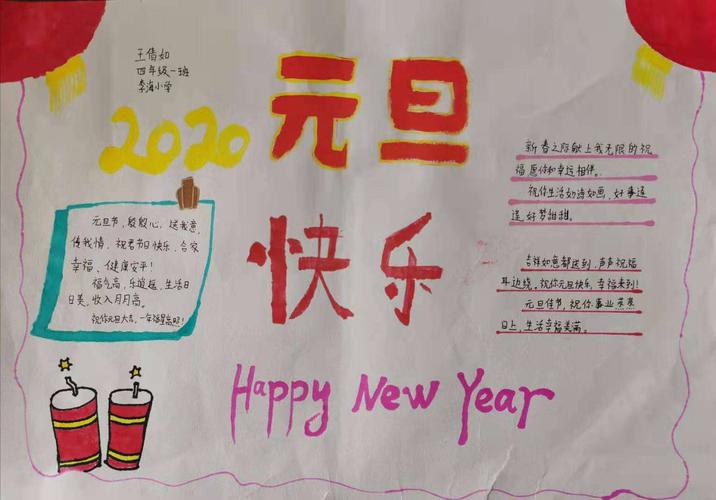 王倩如
四年级一班
李海小学
2020
元旦
快乐
元旦节,殷殷心,送我意,
传我情,祝君节日快乐,合家
幸福,健康安平!
福气高,乐逍遥,生活日
日美,收入月月高。
祝你元旦大吉,一年福星高照!
新春之际献上我无限的祝
福愿你和幸运相伴。
祝你生活如诗如画,好事连
连好梦甜甜。
吉祥如意都送到,声声祝福
耳边绕。祝你元旦快乐,幸福来到!
元旦佳节,祝你事业蒸蒸
日上,生活幸福美满。
Happy New Year